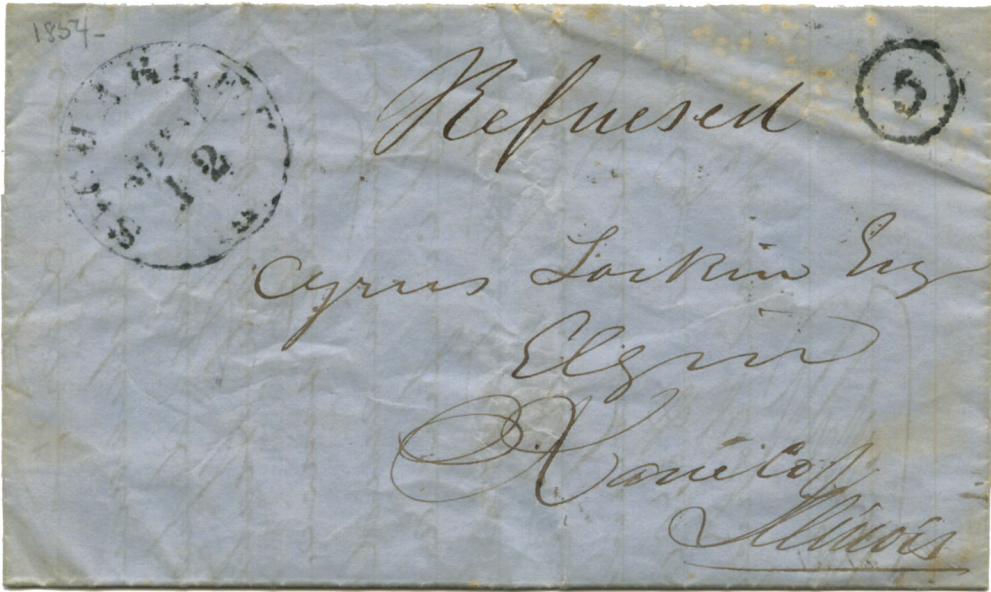 1854-
ST CHARLES
12
5
Refuesed
Cyrus Larkin Esq
Elgin
Kane Co
Illinois